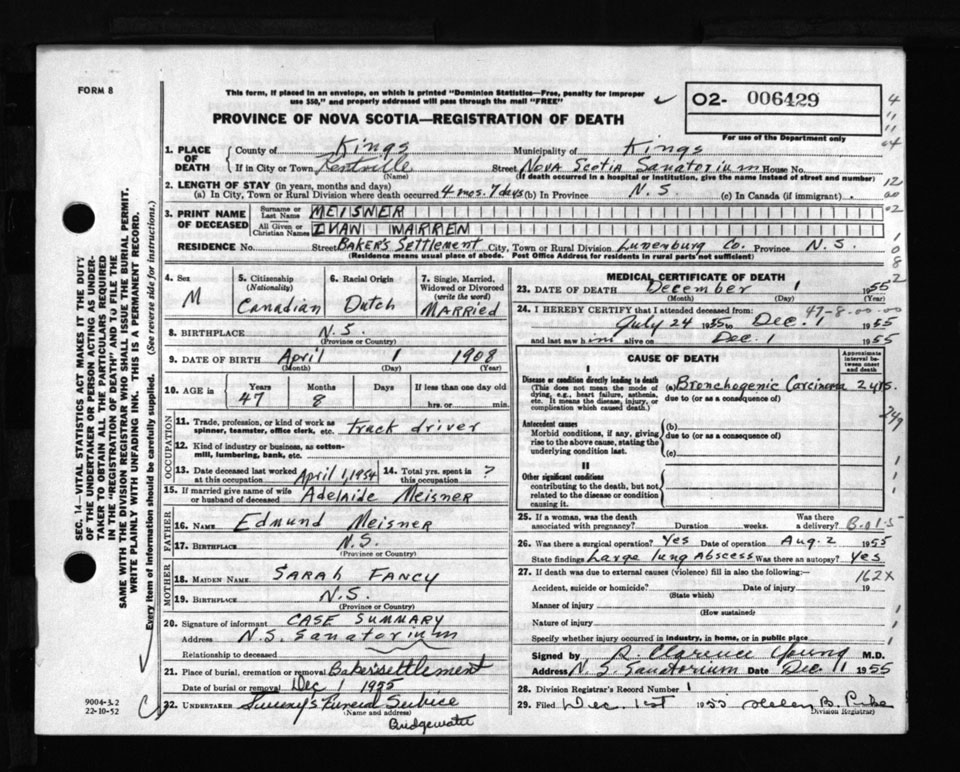 FORM 8
This form, if placed in an envelope, on which is printed "Dominion Statistics—Free, penalty for improper
use $50," and properly addressed will pass through the mail "FREE"
O2- 006429
PROVINCE OF NOVA SCOTIA—REGISTRATION OF DEATH
For use of the Department only
1. PLACE OF DEATH
County of Kings Municipality of Kings
If in City or Town Kentville Street Nova Scotia Sanatorium House No.
(Name) (If death occurred in a hospital or institution, give the name instead of street and number)
2. LENGTH OF STAY (in years, months and days)
(a) In City, Town or Rural Division where death occurred 4 mos. 7 days (b) In Province N.S. (c) In Canada (if immigrant)
3. PRINT NAME OF DECEASED
Surname or Last Name MEISNER
All Given or Christian Names IVAN WARREN
RESIDENCE No. Street Baker's Settlement City, Town or Rural Division Lunenburg Co. Province N.S.
(Residence means usual place of abode. Post Office Address for residents in rural parts not sufficient)
4. Sex M
5. Citizenship (Nationality) Canadian
6. Racial Origin Dutch
7. Single, Married, Widowed or Divorced (write the word) MARRIED
8. BIRTHPLACE N.S.
(Province or Country)
9. DATE OF BIRTH April 1 1908
(Month) (Day) (Year)
10. AGE in Years 47 Months 8 Days If less than one day old hrs. or min.
OCCUPATION
11. Trade, profession, or kind of work as spinner, teamster, office clerk, etc. truck driver
12. Kind of industry or business, as cotton-mill, lumbering, bank, etc.
13. Date deceased last worked at this occupation April 1, 1954
14. Total yrs. spent in this occupation ?
15. If married give name of wife or husband of deceased Adelaide Meisner
FATHER
16. NAME Edmund Meisner
17. BIRTHPLACE N.S.
(Province or Country)
MOTHER
18. MAIDEN NAME Sarah Fancy
19. BIRTHPLACE N.S.
(Province or Country)
20. Signature of informant CASE SUMMARY
Address N.S. Sanatorium
Relationship to deceased
21. Place of burial, cremation or removal Bakersettlement
Date of burial or removal Dec 1 1955
22. UNDERTAKER Sweeny's Funeral Service
(Name and address)
Bridgewater
MEDICAL CERTIFICATE OF DEATH
23. DATE OF DEATH December 1 1955
(Month) (Day) (Year)
47-8-00-00
24. I HEREBY CERTIFY that I attended deceased from:
July 24 1955 to Dec. 1 1955
and last saw him alive on Dec. 1 1955
CAUSE OF DEATH
Approximate interval between onset and death
I
Disease or condition directly leading to death (a) Bronchogenic Carcinoma 2 yrs.
(This does not mean the mode of dying, e.g., heart failure, asthenia, etc. It means the disease, injury, or complication which caused death.)
due to (or as a consequence of)
Antecedent causes
Morbid conditions, if any, giving rise to the above cause, stating the underlying condition last.
(b)
due to (or as a consequence of)
(c)
II
Other significant conditions
contributing to the death, but not related to the disease or condition causing it.
25. If a woman, was the death associated with pregnancy? Duration weeks. Was there a delivery?
26. Was there a surgical operation? Yes Date of operation Aug. 2 1955
State findings Large lung abscess Was there an autopsy? Yes
27. If death was due to external causes (violence) fill in also the following:—
162X
Accident, suicide or homicide? Date of injury 19
(State which)
Manner of injury
(How sustained)
Nature of injury
Specify whether injury occurred in industry, in home, or in public place
Signed by R. Clarence Young M.D.
Address N.S. Sanatorium Date Dec 1 1955
28. Division Registrar's Record Number 1
29. Filed Dec. 1st 1955 Helen B.
Division Registrar)
SEC. 14—VITAL STATISTICS ACT MAKES IT THE DUTY
OF THE UNDERTAKER OR PERSON ACTING AS UNDER-
TAKER TO OBTAIN ALL THE PARTICULARS REQUIRED
IN THE "REGISTRATION OF DEATH" AND TO FILE THE
SAME WITH THE DIVISION REGISTRAR WHO SHALL ISSUE THE BURIAL PERMIT.
WRITE PLAINLY WITH UNFADING INK. THIS IS A PERMANENT RECORD.
Every item of information should be carefully supplied. (See reverse side for instructions.)
9004-3.2
22-10-52